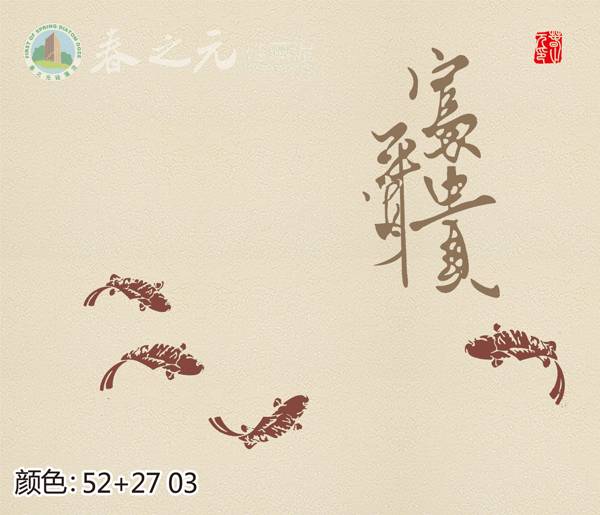 FIRST OF SPRING DIATOM OOZE
春之元硅藻泥
春之元
富贵
平安
颜色: 52+27 03